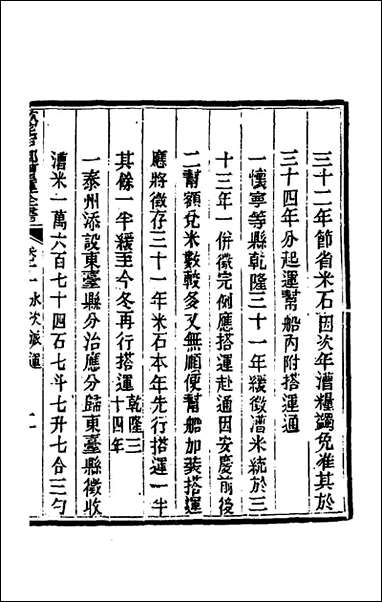 三十二年節省米石因次年漕糧蠲免准其於
三十四年分起運幫船內附搭運通
一懷寧等縣乾隆三十一年緩徵漕米統於三
十三年一併徵完例應搭運赴通因安慶前後
二幫額兌米數較多又無順便幫船加裝搭運
應將徵存三十一年米石本年先行搭運一半
其餘一半緩至今冬再行搭運乾隆三十四年
一泰州添設東臺縣分治應分歸東臺縣徵收
漕米一萬六百七十四石七斗七升七合三勺
全書 卷十一 水次派運